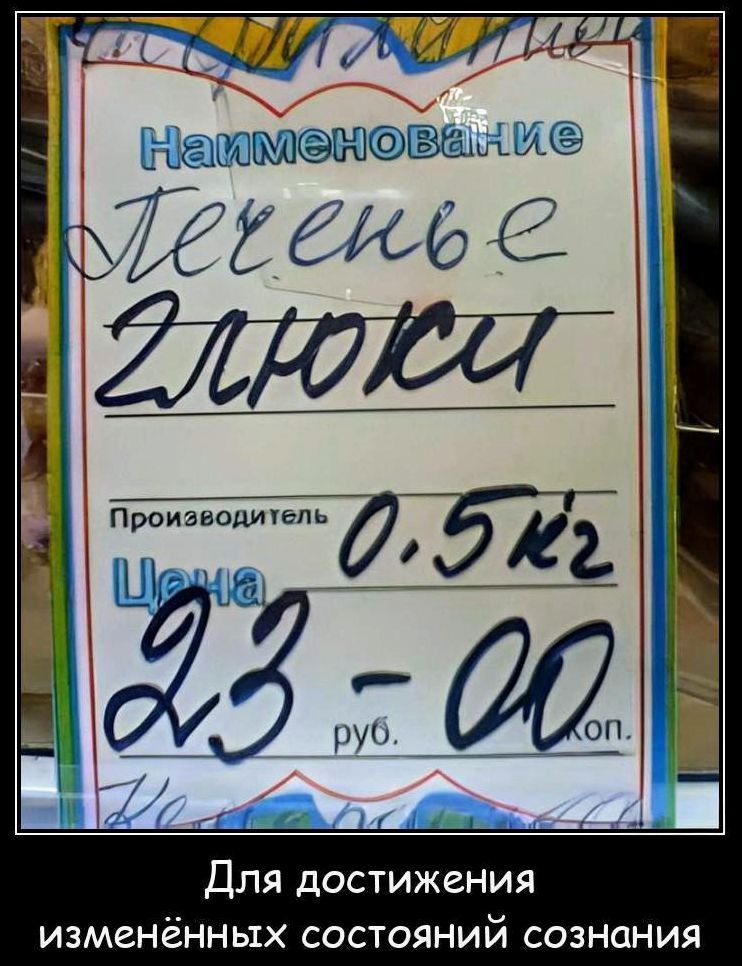 Наименование
Печенье
глюки
Производитель 0.5кг
Цена
23-00
руб. коп.
Для достижения
изменённых состояний сознания